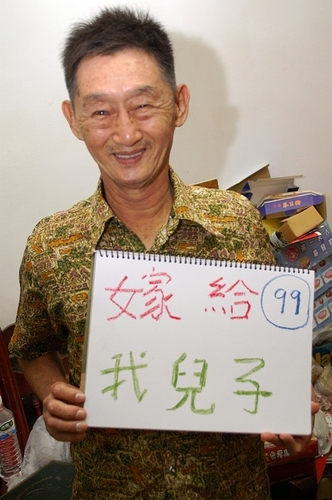 嫁給 99
我兒子